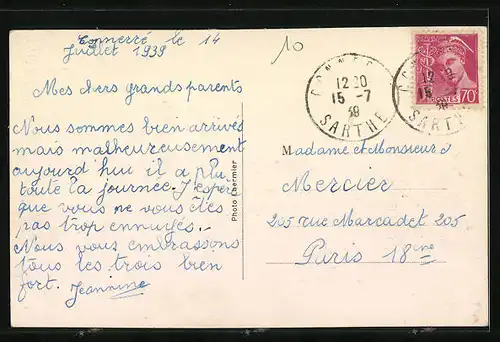 Connerré le 14
Juillet 1939
Mes chers grands parents
Nous sommes bien arrivés
mais malheureusement
aujourd hui il a plu
toute la journée. J'espère
que vous ne vous êtes
pas trop ennuyés.
Nous vous embrassons
tous les trois bien
fort. Jeannine
10
CONNERRÉ
12 20
15 -7
39
SARTHE
POSTES 70c
Photo Lhermier
Madame et Monsieur
Mercier
205 rue Marcadet 205
Paris 18ème